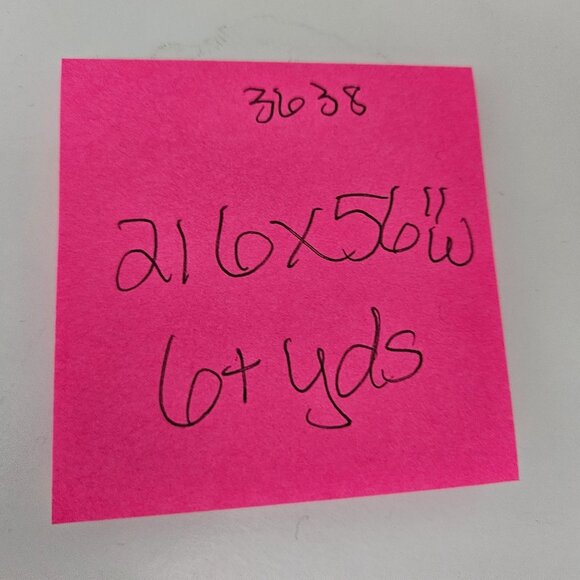 3638
216x56"w
6+ yds